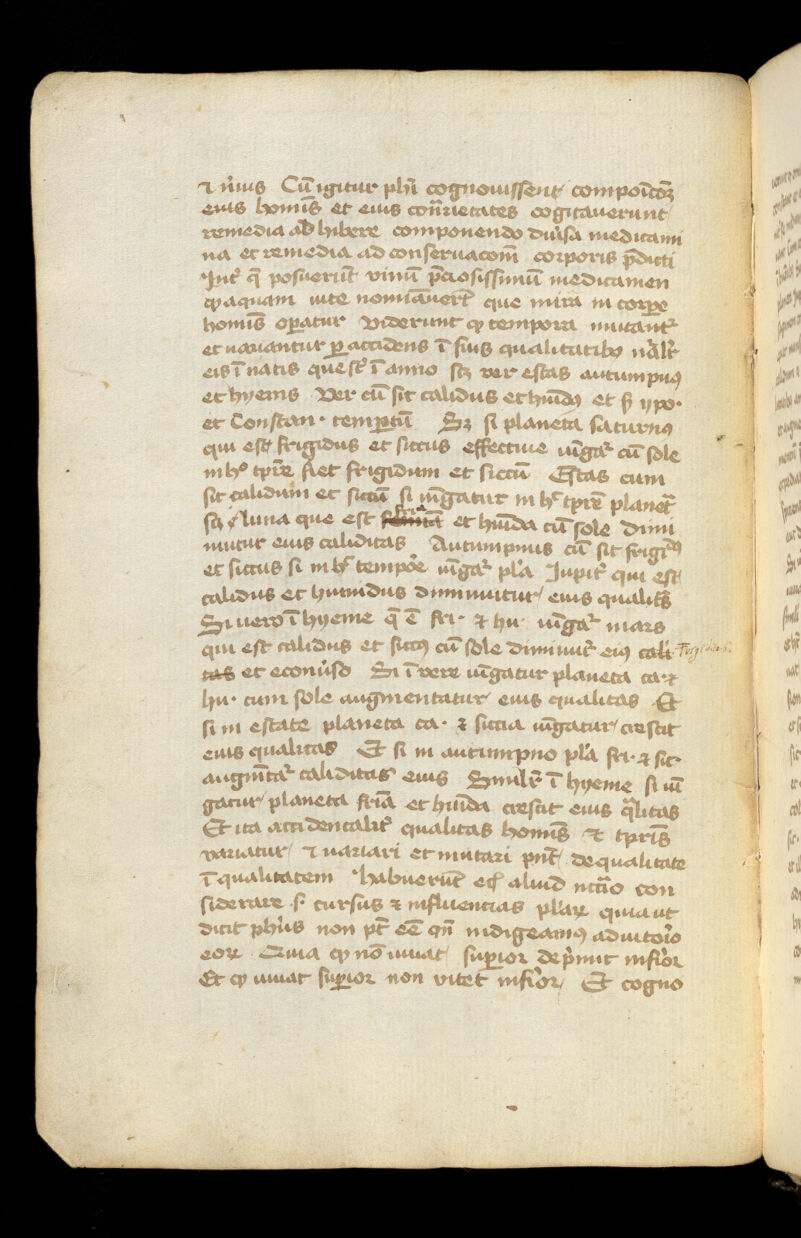 ⁊ nr̄ius Cū igitur phi̅ cognouissent compoic̄oꝫ
eius homīs et eius cōn̄rietates cogitauerunt
remedia adhibere componendo diu̓sa medicami
na et remedia ad conseruacom̄ corporis p̄dicti
Int̓ q̄ posuerūt vinū p̄ciosissimū medicamen
ꝙ aquam uite nomīauert̄ que mira in corpe
homīs oꝑatur Viderunt ꝙ tempora mutant̓
et uariantur ꝑ accidens ī suis qualitatibꝰ nālr̓
eis īnatis que sūt ī anno scꝫ ver estas autumpnꝰ
et hyems Ver cū sit calidus et humidꝰ et ẜ ypo·
et Constan· tempatū Sꝫ si planeta saturnꝰ
qui est frigidus et siccus effectiue iūgat̓ cū sole
in hͦ tpr̄e fiet frigidum et siccū Estas cum
sit calidum et siccū si iūgatur in hͦ tpr̄e planet̓
scꝫ luna que est et humīda cū sole dimi
nuitur eius caliditas Autumpnus cū sit frigidꝰ
et siccus si in hͦ tempoe̓ iūgat̓ pla̓ Iupit̓ qui est
calidus et humidus diminuitur eius qualitas
Si uero ī hyeme q̄ ē fri· ⁊ hu· iūgat̓ mars
qui est calidus et siccꝰ cū sole diminuit̓ eiꝰ cali
tas et econu̓so Si ī vere iūgatur planeta ca· ⁊
hu· cum sole augmentatur eius qualitas Et
si in estate planeta ca· ⁊ sicca iūgatur crescit
eius qualitas Et si in autumpno pla̓ fri· ⁊ sic·
augmētat̓ caliditas eius Similr̓ ī hyeme si iū
gatur planeta fria̅ et humīda crescit eius qlitas
Et ita accidentalit̓ qualitas homīs ⁊ tpr̄is
variatur ⁊ uariari et mutari pn̄t de qualitate
ī qualitatem Habuerūt eciā aliud nccīo con
siderare s· cursus ⁊ influencias plaꝝ quia ut
dicit phus̓ non pt̄ eē qn̄ indigeamꝰ adiutoīo
eoꝝ Quia ꝙ nō iuuat suꝑior dep̓mit infi̓or
Et ꝙ iuuat suꝑior non vitet infi̓or Et cogno